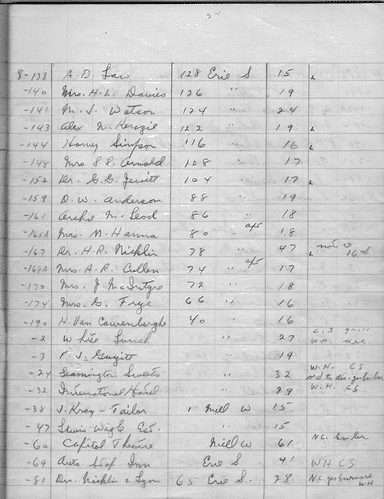 24
8-138 A. D. 128 Erie S 15
-140 Mrs. H. L. Davies 126 " 19
-141 M. J. Watson 124 " 24
-143 Alex McKenzie 122 " 19
-144 Harvey Simpson 116 " 16
-148 Mrs S. E. Arnold 108 " 17
-152 Dr. C. G. Jewitt 104 " 17
-159 D. W. Anderson 88 " 19
-161 Archie McLeod 86 " 18
-165A Mrs. M Hanna 80 " apt 18
-167 Dr. H. R. Nicklin 78 " 47
-168A Mrs. A. R. Cullen 74 " apt 17
-170 Mrs. J. McIntyre 72 " 18
-174 Mrs. G. Frye 66 " 16
-190 H Van Cauwenberghe 40 " 16
-2 White Lunch " 27 W H
-3 F. J. " 19
-24 Leamington Sweets " 32 W.H. CS
-32 International Hotel " 29 W.H. CS
-38 J. Kray - Tailor 1 Mill W 15
-47 Lewis Wigle Est. " 15
-60 Capitol Theatre Mill W 61
-69 Auto Stop Inn Erie S 41 WH CS
-81 Drs. Nicklin & Lyon 65 Erie S. 28 WH